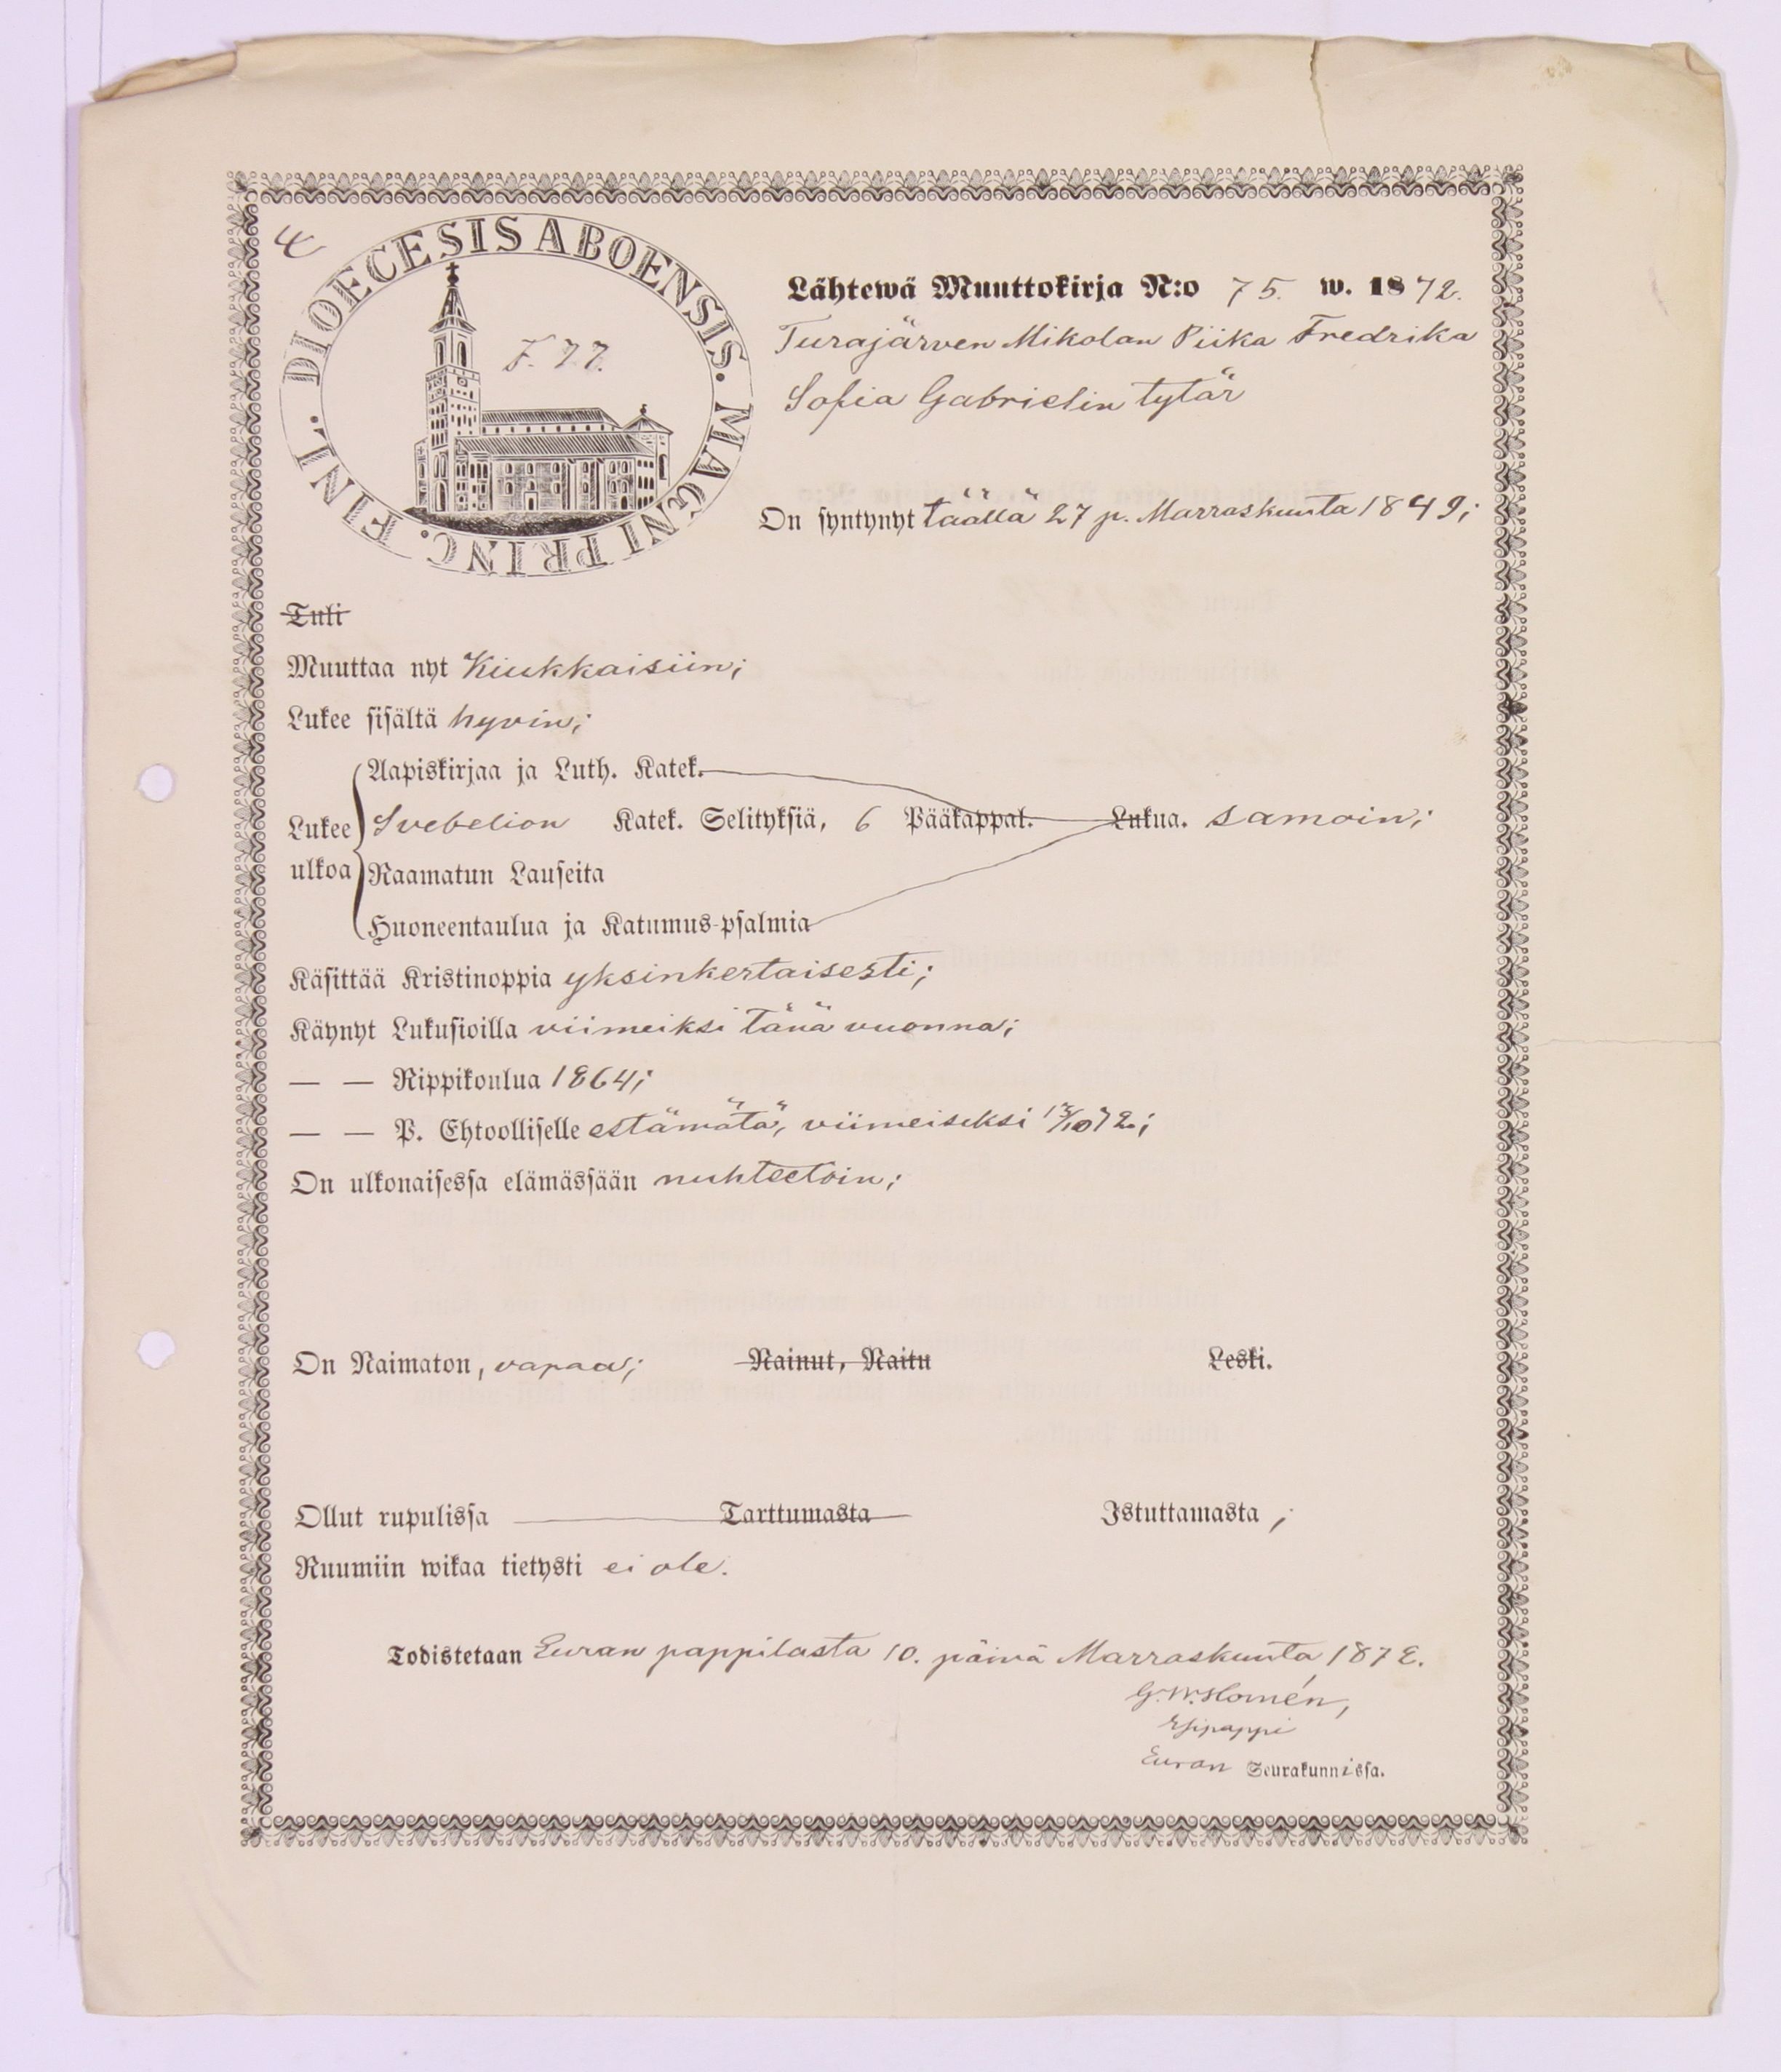 DIOECESIS ABOENSIS. MAGNI PRINC. FINL.
Lähtewä Muuttokirja N:o 75. w. 1872.
Turajärven Mikolan Piika Fredrika
Sofia Gabrielin tytär
On syntynyt täällä 27 p. Marraskuuta 1849;
Tuli
Muuttaa nyt Kiukkaisiin;
Lukee sisältä hyvin;
Aapiskirjaa ja Luth. Katek.
Lukee Svebelion Katek. Selityksiä, 6 Pääkappal. Lukua. samoin;
ulkoa Raamatun Lauseita
Huoneentaulua ja Katumus-psalmia
Käsittää Kristinoppia yksinkertaisesti;
Käynyt Lukusioilla viimeiksi tänä vuonna;
— — Rippikoulua 1864;
— — P. Ehtoolliselle estämätä, viimeiseksi 72;
On ulkonaisessa elämässään nuhteetoin;
On Naimaton, vapaa; Nainut, Naitu Leski.
Ollut rupulissa Tarttumasta Istuttamasta ;
Ruumiin wikaa tietysti ei ole.
Todistetaan Euran pappilasta 10. päivä Marraskuuta 1872.
G. W. Homén,
Esipappi
Euran Seurakunnissa.